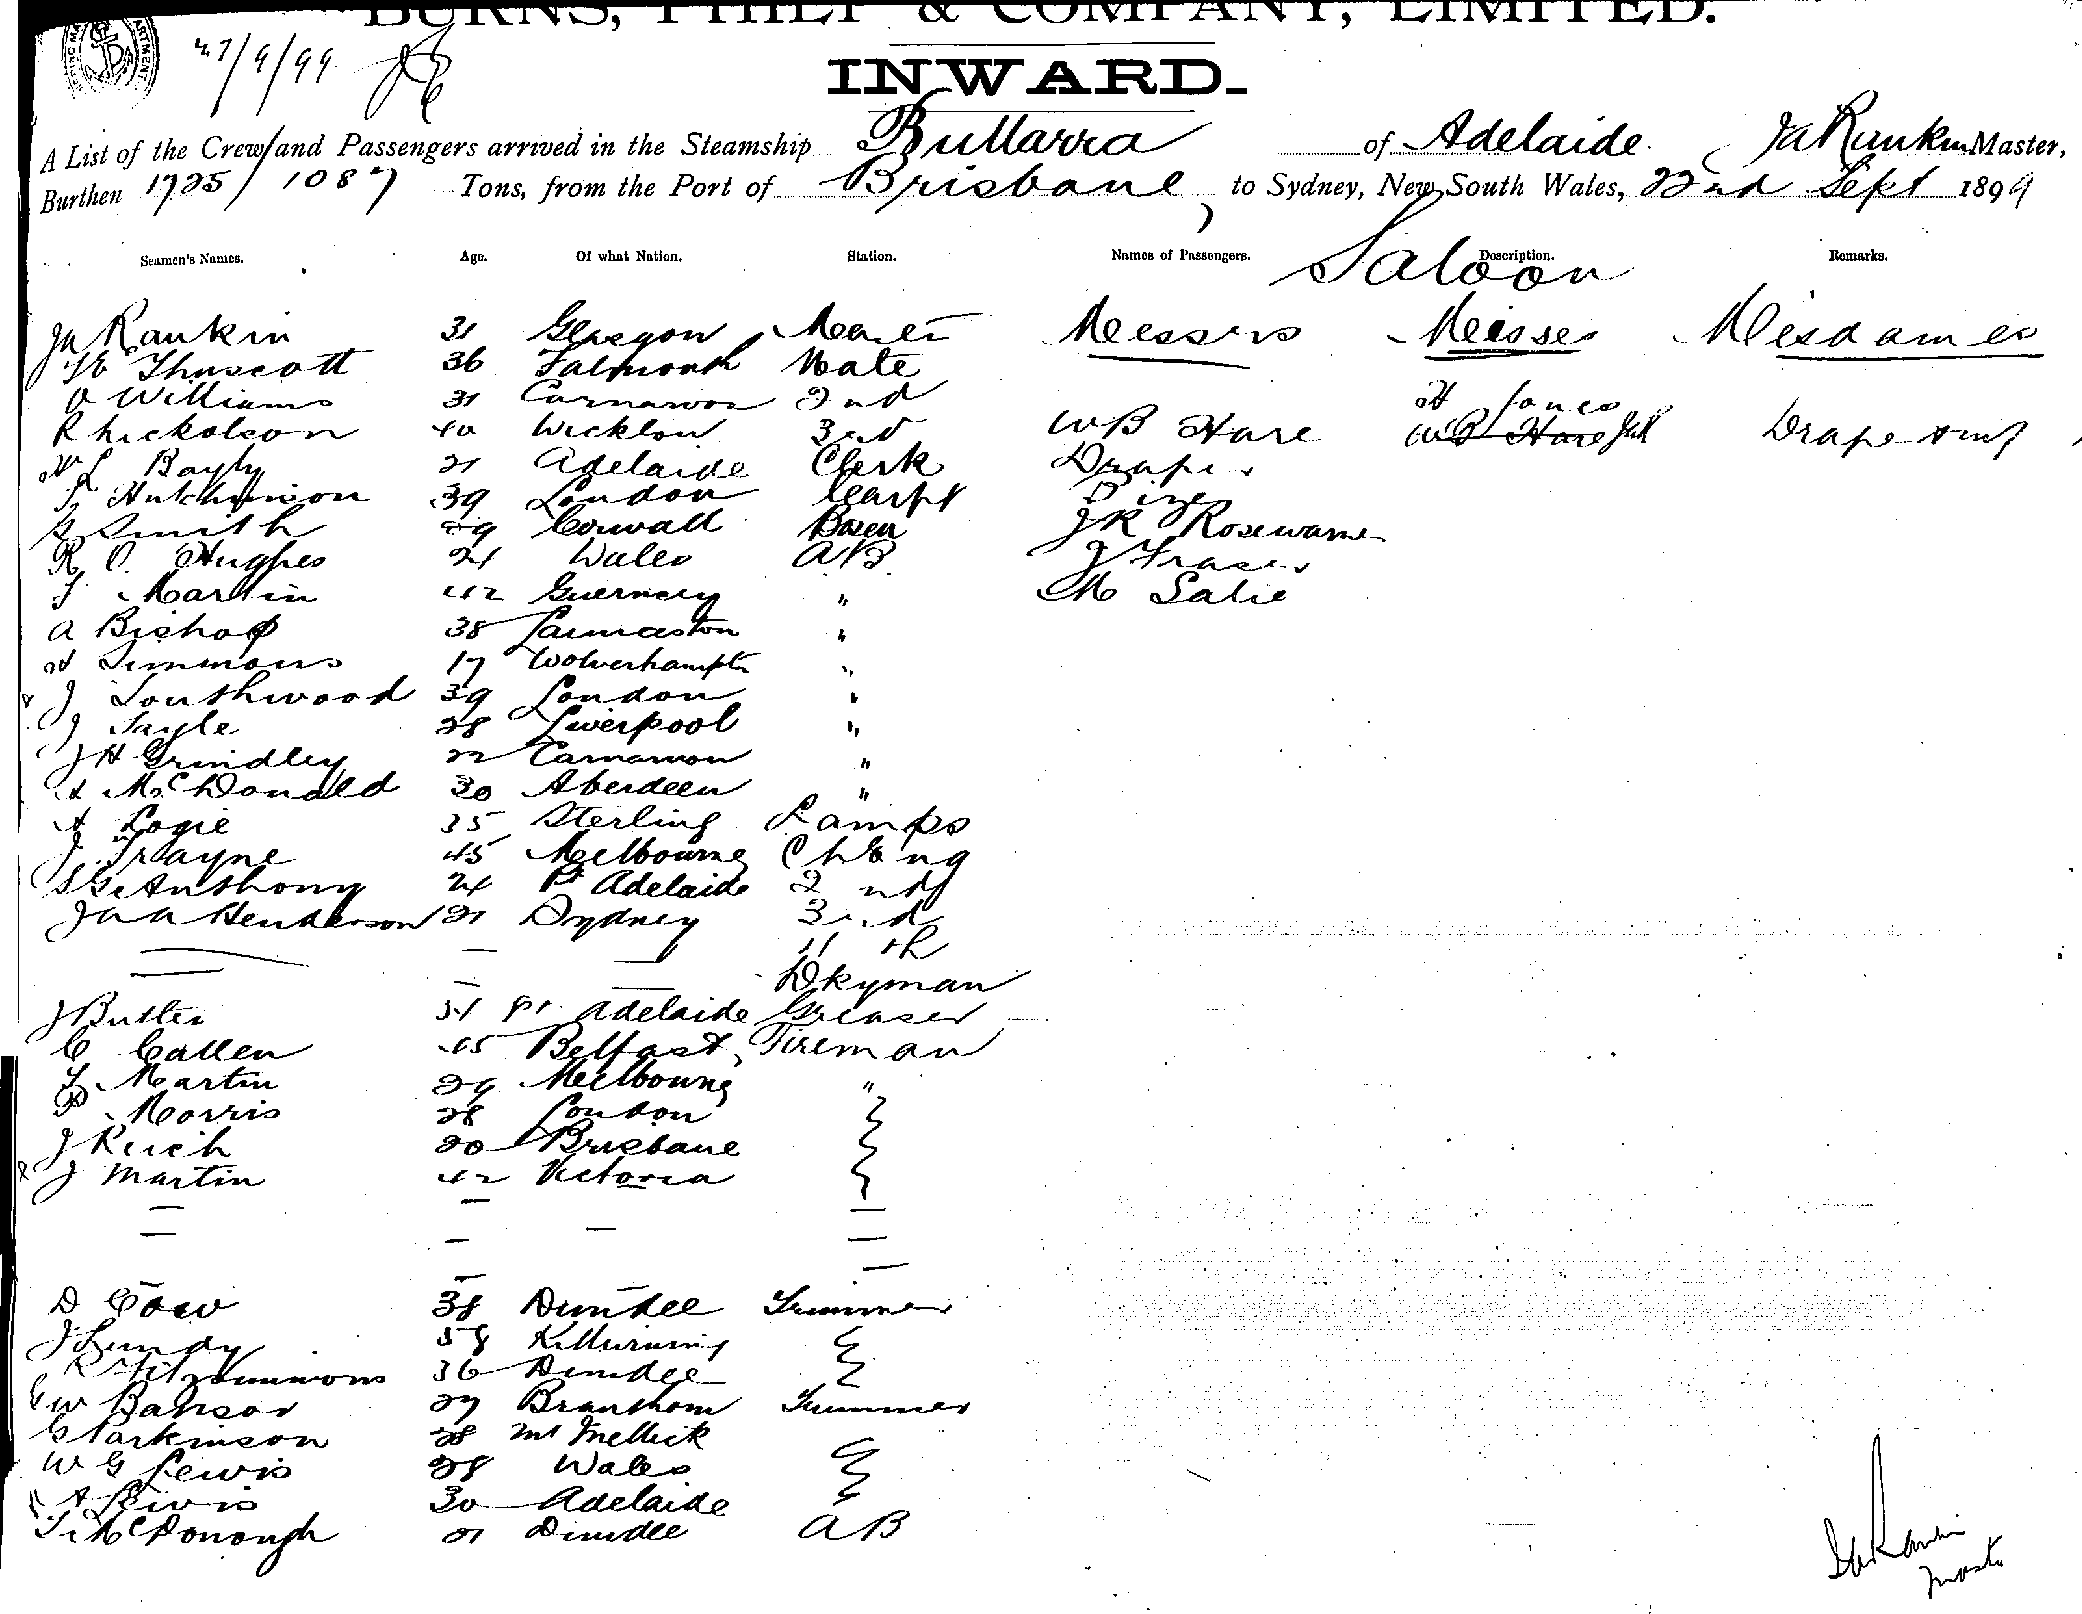 BURNS, PHILP & COMPANY, LIMITED.
27/9/99
INWARD.
A List of the Crew and Passengers arrived in the Steamship Bullarra of Adelaide Ja Rankin Master,
Burthen 1725/1087 Tons, from the Port of Brisbane, to Sydney, New South Wales, 22nd Sept 1899
Saloon
Seamen's Names. Age. Of what Nation. Station. Names of Passengers. Description. Remarks.
Ja Rankin 31 Glasgow Messrs Misses Mesdames
Thuscott 36 Falmouth Mate
Williams 31 Carnarvon 2nd H Jones
R Nickolson 40 Wicklow 3rd W B Hare W B Hare Drape & Inf
W L Bayly 21 Adelaide Clerk Draper
Hutchinson 39 London Carpt
Smith 29 Cornwall Bosen J R Rosewarne
R O. Hughes 24 Wales AB J Fraser
Martin 42 Guernsey " M Salie
A Bishop 38 Launceston "
Simmons 17 Wolverhampton "
J Southwood 39 London "
J Sayle 28 Liverpool "
J H Grindley 22 Carnarvon "
A McDonald 30 Aberdeen "
A Logie 35 Sterling Lamps
J Trayne 45 Melbourne Ch Eng
Anthony 24 Pt Adelaide 2nd
Ja A Henderson 21 Sydney 3rd
— — — 4th
— — — Dkyman
J Butler 34 Pt Adelaide Greaser
C Callen 45 Belfast Fireman
Martin 29 Melbourne "
P Morris 28 London
J Reich 20 Brisbane
J Martin 42 Victoria
D Cow 38 Dundee Trimmer
J Lundy 58 Killwinning
R Fitzsimmons 36 Dundee
W 29 Brantham Trimmer
G Parkinson 28 Mt Mellick
W G Lewis 28 Wales
A Lewis 30 Adelaide
McDonough 21 Dundee AB
Ja Rankin